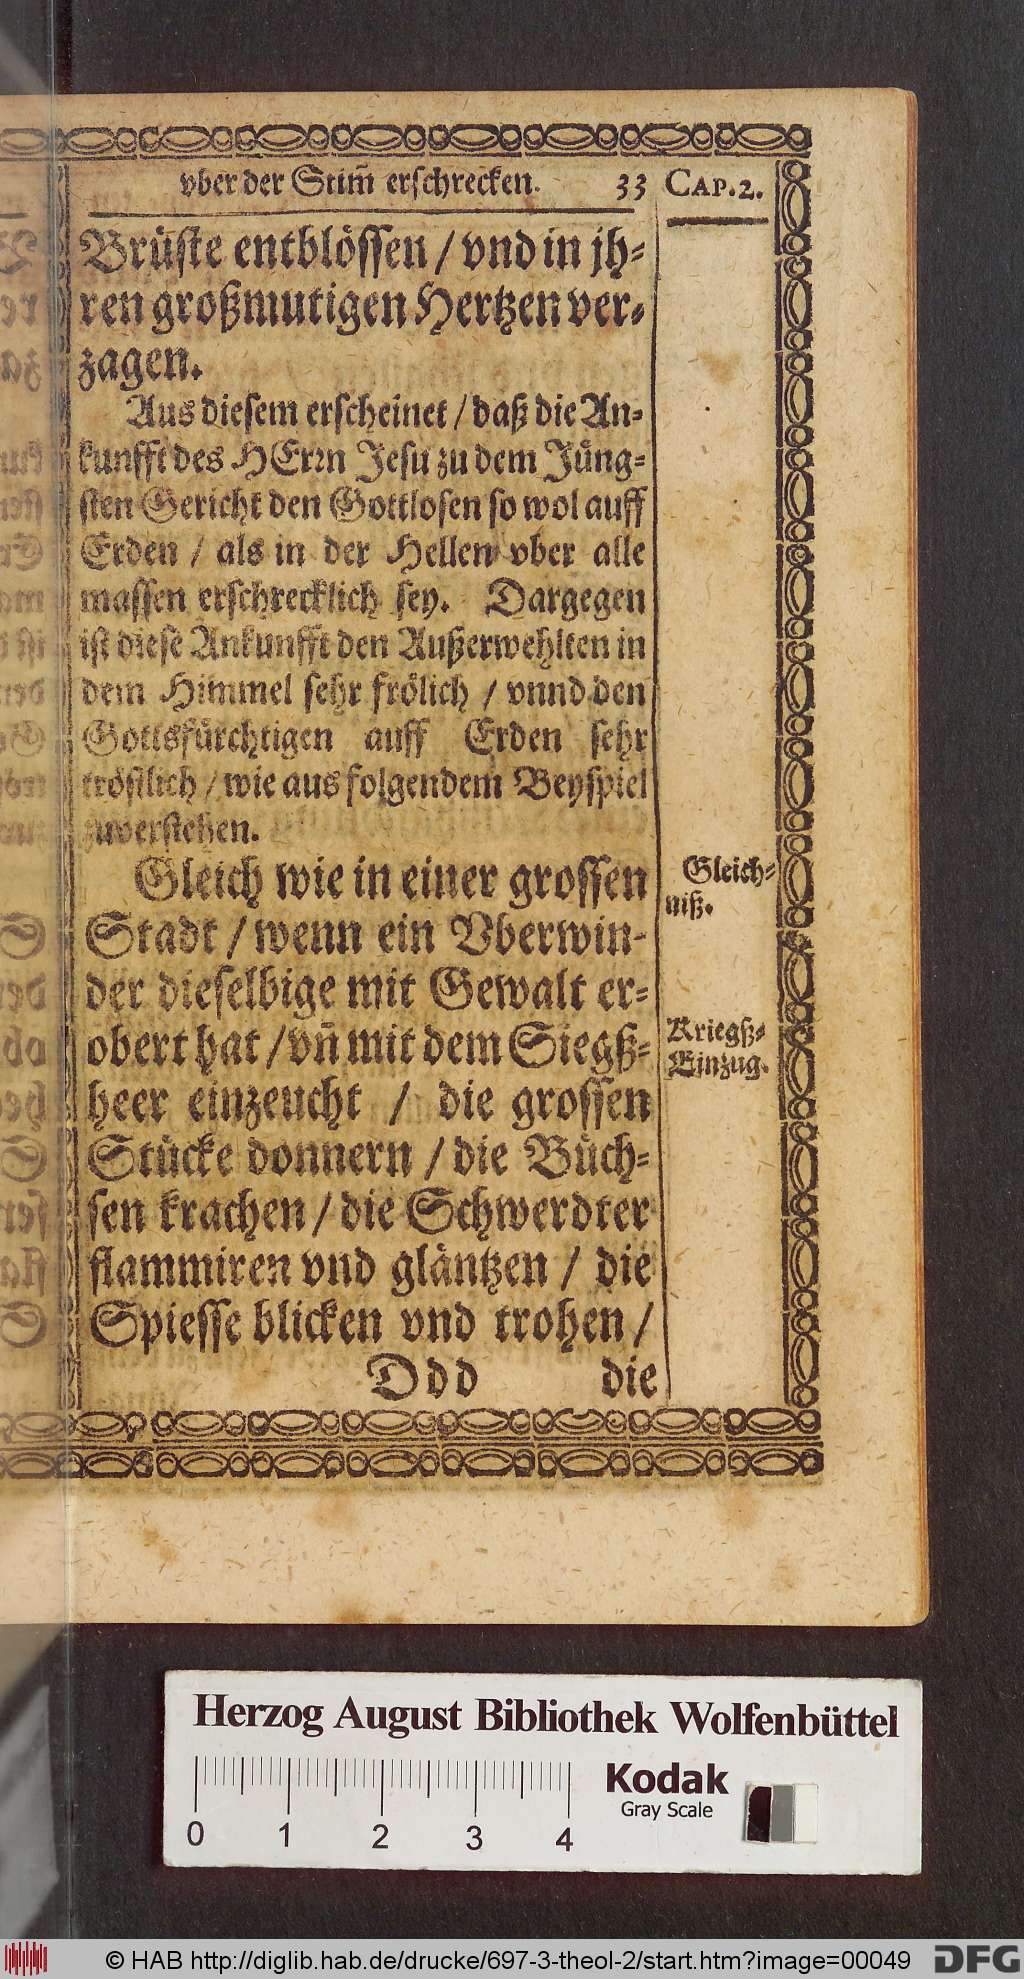 vber der Stim̃ erschrecken. 33 CAP.2.
Brüste entblössen / vnd in jh-
ren großmutigen Hertzen ver-
zagen.
Aus diesem erscheinet / daß die An-
kunfft des HErrn Jesu zu dem Jüng-
sten Gericht den Gottlosen so wol auff
Erden / als in der Hellen vber alle
massen erschrecklich sey. Dargegen
ist diese Ankunfft den Außerwehlten in
dem Himmel sehr frölich / vnnd den
Gottsfürchtigen auff Erden sehr
tröstlich / wie aus folgendem Beyspiel
zuverstehen.
Gleich wie in einer grossen
Gleich-
niß.
Stadt / wenn ein Vberwin-
der dieselbige mit Gewalt er-
obert hat / vñ mit dem Siegß-
Kriegß-
Einzug.
heer einzeucht / die grossen
Stücke donnern / die Büch-
sen krachen / die Schwerdter
flammiren vnd gläntzen / die
Spiesse blicken vnd trohen /
Ddd die
Herzog August Bibliothek Wolfenbüttel
Kodak
Gray Scale
0 1 2 3 4
© HAB http://diglib.hab.de/drucke/697-3-theol-2/start.htm?image=00049
DFG